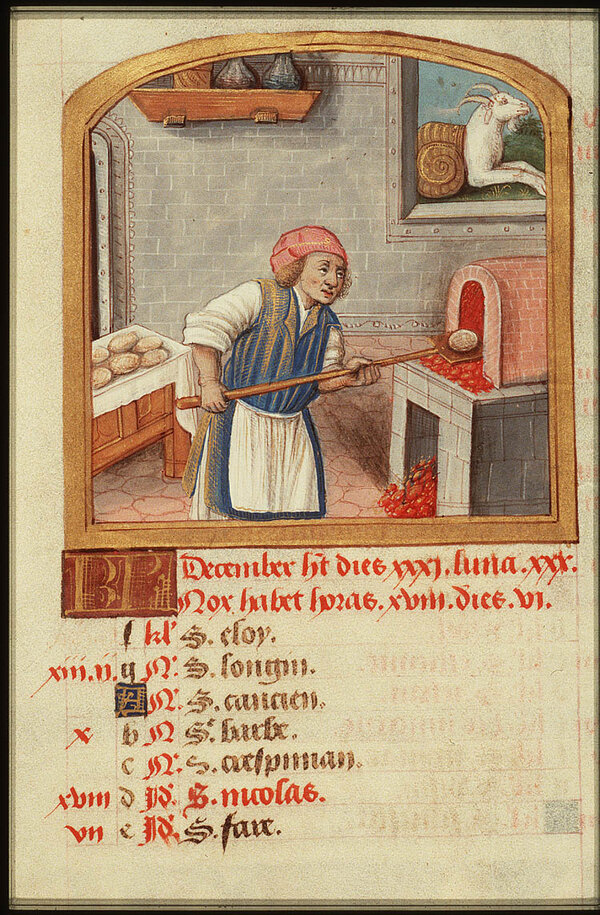 KL December ht dies xxxi. luna. xxx.
Nox habet horas. xviii. dies. vi.
f kl' S. eloy.
xiii. ii. g N. S. longin.
A N. S. cancien.
x b N Ste. barbe.
c N. S. crespinian.
xviii d Id'. S. nicolas.
vii e Id'. S. fare.